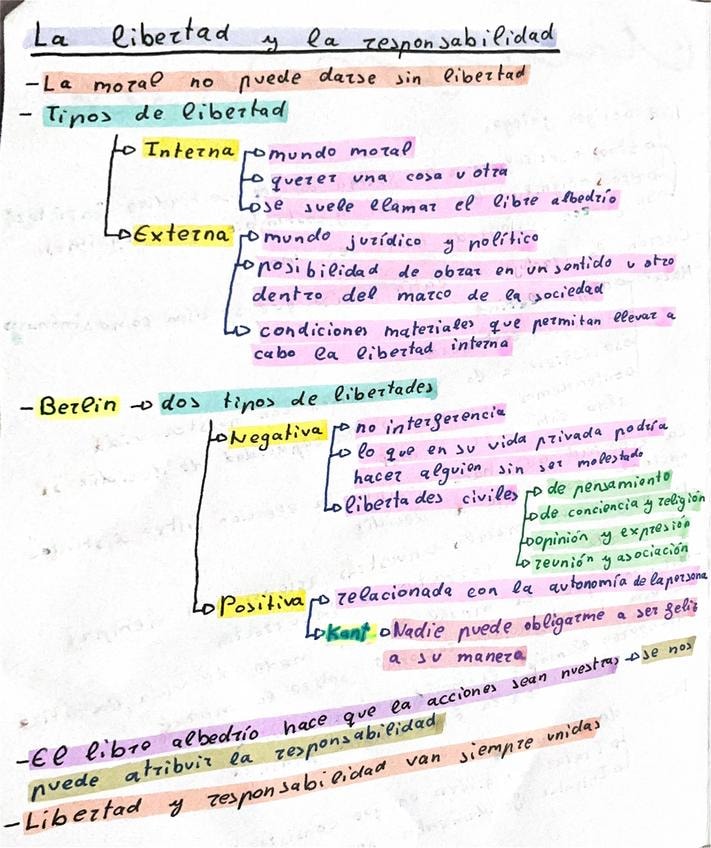 La libertad y la responsabilidad
- La moral no puede darse sin libertad
- Tipos de libertad
Interna
mundo moral
querer una cosa u otra
se suele llamar el libre albedrío
Externa
mundo jurídico y político
posibilidad de obrar en un sentido u otro
dentro del marco de la sociedad
condiciones materiales que permitan llevar a
cabo la libertad interna
- Berlin → dos tipos de libertades
Negativa
no interferencia
lo que en su vida privada podría
hacer alguien sin ser molestado
libertades civiles
de pensamiento
de conciencia y religión
opinión y expresión
reunión y asociación
Positiva
relacionada con la autonomía de la persona
Kant → Nadie puede obligarme a ser feliz
a su manera
- El libre albedrío hace que la acciones sean nuestras → se nos
puede atribuir la responsabilidad
- Libertad y responsabilidad van siempre unidas